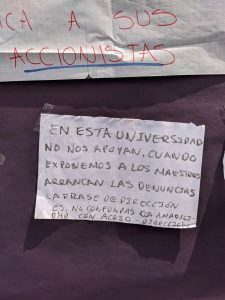 ICA A SUS
ACCIONISTAS
EN ESTA UNIVERSIDAD
NO NOS APOYAN. CUANDO
EXPONEMOS A LOS MAESTROS
ARRANCAN LAS DENUNCIAS
LA FRASE DE DIRECCIÓN
ES. NO CONFUNDAS DA AMABILI-
DAD CON ACOSO - DIRECCIÓN